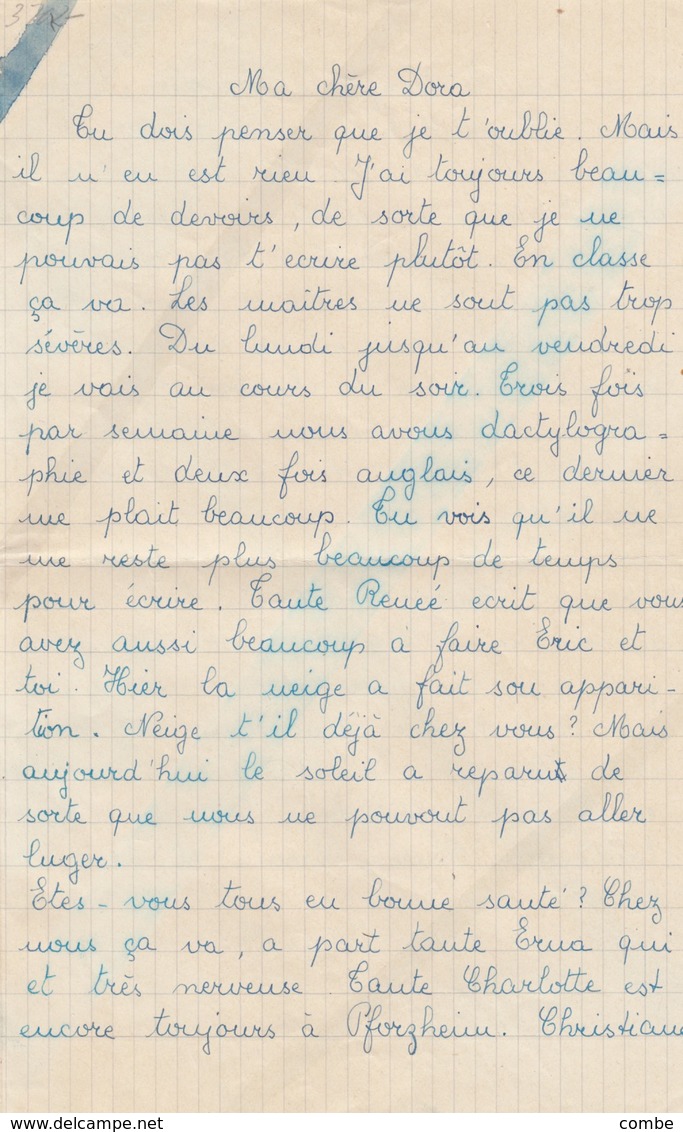 Ma chère Dora
Tu dois penser que je t'oublie. Mais
il n'en est rien. J'ai toujours beau=
coup de devoirs, de sorte que je ne
pouvais pas t'ecrire plutôt. En classe
ça va. Les maîtres ne sont pas trop
sévères. Du lundi jusqu'au vendredi
je vais au cours du soir. Trois fois
par semaine nous avons dactylogra=
phie et deux fois anglais, ce dernier
me plait beaucoup. Tu vois qu'il ne
me reste plus beaucoup de temps
pour écrire. Tante Reneé ecrit que vous
avez aussi beaucoup à faire Eric et
toi. Hier la neige a fait son appari-
tion. Neige t'il déjà chez vous? Mais
aujourd'hui le soleil a reparu de
sorte que nous ne pouvont pas aller
luger.
Etes-vous tous en bonne santé? Chez
nous ça va, a part tante Erna qui
et très nerveuse. Tante Charlotte est
encore toujours à Pforzheim. Christiane
www.delcampe.net
combe